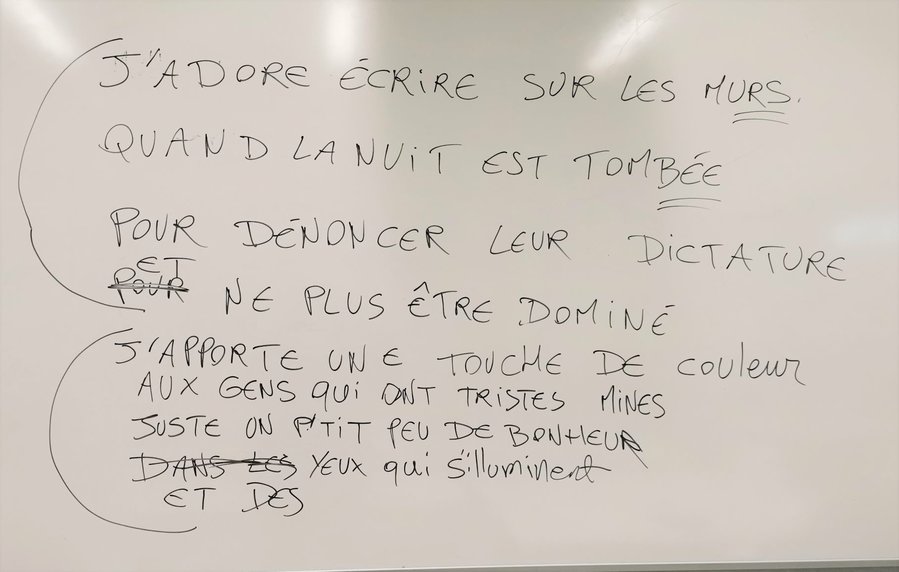 J'ADORE ÉCRIRE SUR LES MURS.
QUAND LA NUIT EST TOMBÉE
POUR DÉNONCER LEUR DICTATURE
ET
POUR NE PLUS ÊTRE DOMINÉ
J'APPORTE UNE TOUCHE DE couleur
AUX GENS qui ONT TRISTES MINES
JUSTE UN P'TIT PEU DE BONHEUR
DANS LES YEUX qui s'illuminent
ET DES